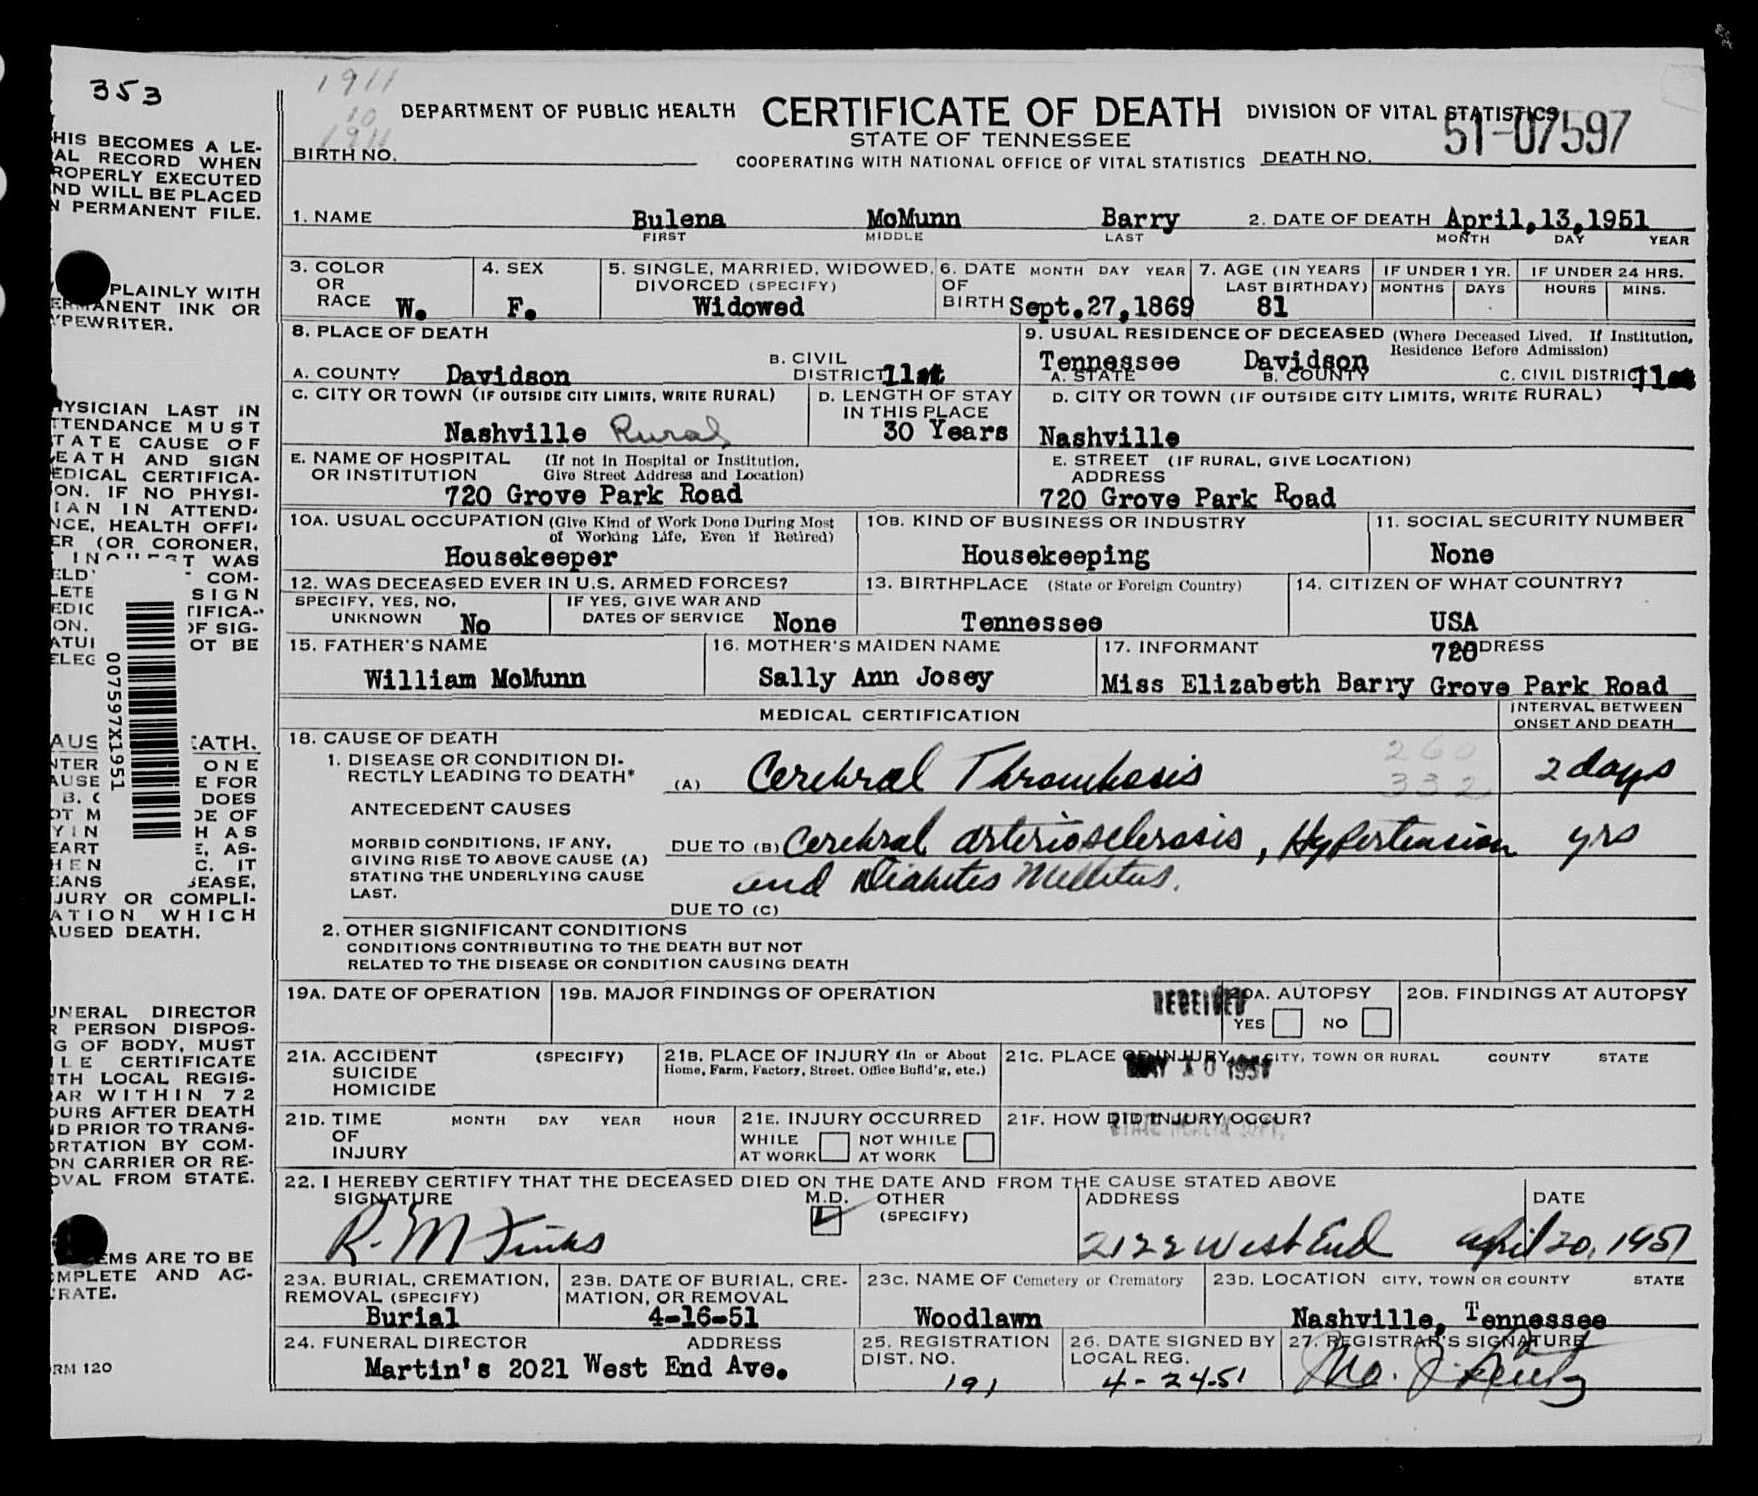 353
1911
10
1911
DEPARTMENT OF PUBLIC HEALTH CERTIFICATE OF DEATH DIVISION OF VITAL STATISTICS
STATE OF TENNESSEE
COOPERATING WITH NATIONAL OFFICE OF VITAL STATISTICS
BIRTH NO. DEATH NO. 51-07597
1. NAME Bulena McMunn Barry 2. DATE OF DEATH April,13,1951
FIRST MIDDLE LAST MONTH DAY YEAR
3. COLOR OR RACE W.
4. SEX F.
5. SINGLE, MARRIED, WIDOWED, DIVORCED (SPECIFY) Widowed
6. DATE OF BIRTH MONTH DAY YEAR Sept.27,1869
7. AGE (IN YEARS LAST BIRTHDAY) 81
IF UNDER 1 YR. MONTHS DAYS
IF UNDER 24 HRS. HOURS MINS.
8. PLACE OF DEATH
A. COUNTY Davidson
B. CIVIL DISTRICT 11st
9. USUAL RESIDENCE OF DECEASED (Where Deceased Lived. If Institution, Residence Before Admission)
Tennessee Davidson 11st
A. STATE B. COUNTY C. CIVIL DISTRICT
C. CITY OR TOWN (IF OUTSIDE CITY LIMITS, WRITE RURAL)
Nashville Rural
D. LENGTH OF STAY IN THIS PLACE
30 Years
D. CITY OR TOWN (IF OUTSIDE CITY LIMITS, WRITE RURAL)
Nashville
E. NAME OF HOSPITAL OR INSTITUTION (If not in Hospital or Institution, Give Street Address and Location)
720 Grove Park Road
E. STREET ADDRESS (IF RURAL, GIVE LOCATION)
720 Grove Park Road
10A. USUAL OCCUPATION (Give Kind of Work Done During Most of Working Life, Even if Retired)
Housekeeper
10B. KIND OF BUSINESS OR INDUSTRY
Housekeeping
11. SOCIAL SECURITY NUMBER
None
12. WAS DECEASED EVER IN U.S. ARMED FORCES?
SPECIFY, YES, NO, UNKNOWN No
IF YES, GIVE WAR AND DATES OF SERVICE None
13. BIRTHPLACE (State or Foreign Country)
Tennessee
14. CITIZEN OF WHAT COUNTRY?
USA
15. FATHER'S NAME
William McMunn
16. MOTHER'S MAIDEN NAME
Sally Ann Josey
17. INFORMANT ADDRESS
720
Miss Elizabeth Barry Grove Park Road
MEDICAL CERTIFICATION
INTERVAL BETWEEN ONSET AND DEATH
18. CAUSE OF DEATH
1. DISEASE OR CONDITION DIRECTLY LEADING TO DEATH* (A) Cerebral Thrombosis 2 days
260
332
ANTECEDENT CAUSES
MORBID CONDITIONS, IF ANY, GIVING RISE TO ABOVE CAUSE (A) STATING THE UNDERLYING CAUSE LAST.
DUE TO (B) Cerebral arteriosclerosis, Hypertension yrs
and Diabetes Mellitus.
DUE TO (C)
2. OTHER SIGNIFICANT CONDITIONS
CONDITIONS CONTRIBUTING TO THE DEATH BUT NOT
RELATED TO THE DISEASE OR CONDITION CAUSING DEATH
19A. DATE OF OPERATION
19B. MAJOR FINDINGS OF OPERATION
RECEIVED
20A. AUTOPSY
YES NO
20B. FINDINGS AT AUTOPSY
21A. ACCIDENT SUICIDE HOMICIDE (SPECIFY)
21B. PLACE OF INJURY (In or About Home, Farm, Factory, Street. Office Build'g, etc.)
21C. PLACE OF INJURY CITY, TOWN OR RURAL COUNTY STATE
MAY 10 1951
21D. TIME OF INJURY MONTH DAY YEAR HOUR
21E. INJURY OCCURRED
WHILE AT WORK NOT WHILE AT WORK
21F. HOW DID INJURY OCCUR?
22. I HEREBY CERTIFY THAT THE DECEASED DIED ON THE DATE AND FROM THE CAUSE STATED ABOVE
SIGNATURE M.D. OTHER (SPECIFY) ADDRESS DATE
2122 West End april 20, 1951
23A. BURIAL, CREMATION, REMOVAL (SPECIFY)
Burial
23B. DATE OF BURIAL, CREMATION, OR REMOVAL
4-16-51
23C. NAME OF Cemetery or Crematory
Woodlawn
23D. LOCATION CITY, TOWN OR COUNTY STATE
Nashville, Tennessee
24. FUNERAL DIRECTOR ADDRESS
Martin's 2021 West End Ave.
25. REGISTRATION DIST. NO.
191
26. DATE SIGNED BY LOCAL REG.
4-24-51
27. REGISTRAR'S SIGNATURE
HIS BECOMES A LE-
AL RECORD WHEN
ROPERLY EXECUTED
ND WILL BE PLACED
N PERMANENT FILE.
PLAINLY WITH
ERMANENT INK OR
YPEWRITER.
HYSICIAN LAST IN
TTENDANCE MUST
TATE CAUSE OF
EATH AND SIGN
EDICAL CERTIFICA-
ON. IF NO PHYSI-
IAN IN ATTEND-
NCE, HEALTH OFFI-
ER (OR CORONER,
007597X1951
JURY OR COMPLI-
ATION WHICH
AUSED DEATH.
UNERAL DIRECTOR
R PERSON DISPOS-
G OF BODY, MUST
ILE CERTIFICATE
ITH LOCAL REGIS-
AR WITHIN 72
OURS AFTER DEATH
ND PRIOR TO TRANS-
ORTATION BY COM-
ON CARRIER OR RE-
OVAL FROM STATE.
EMS ARE TO BE
OMPLETE AND AC-
URATE.
RM 120